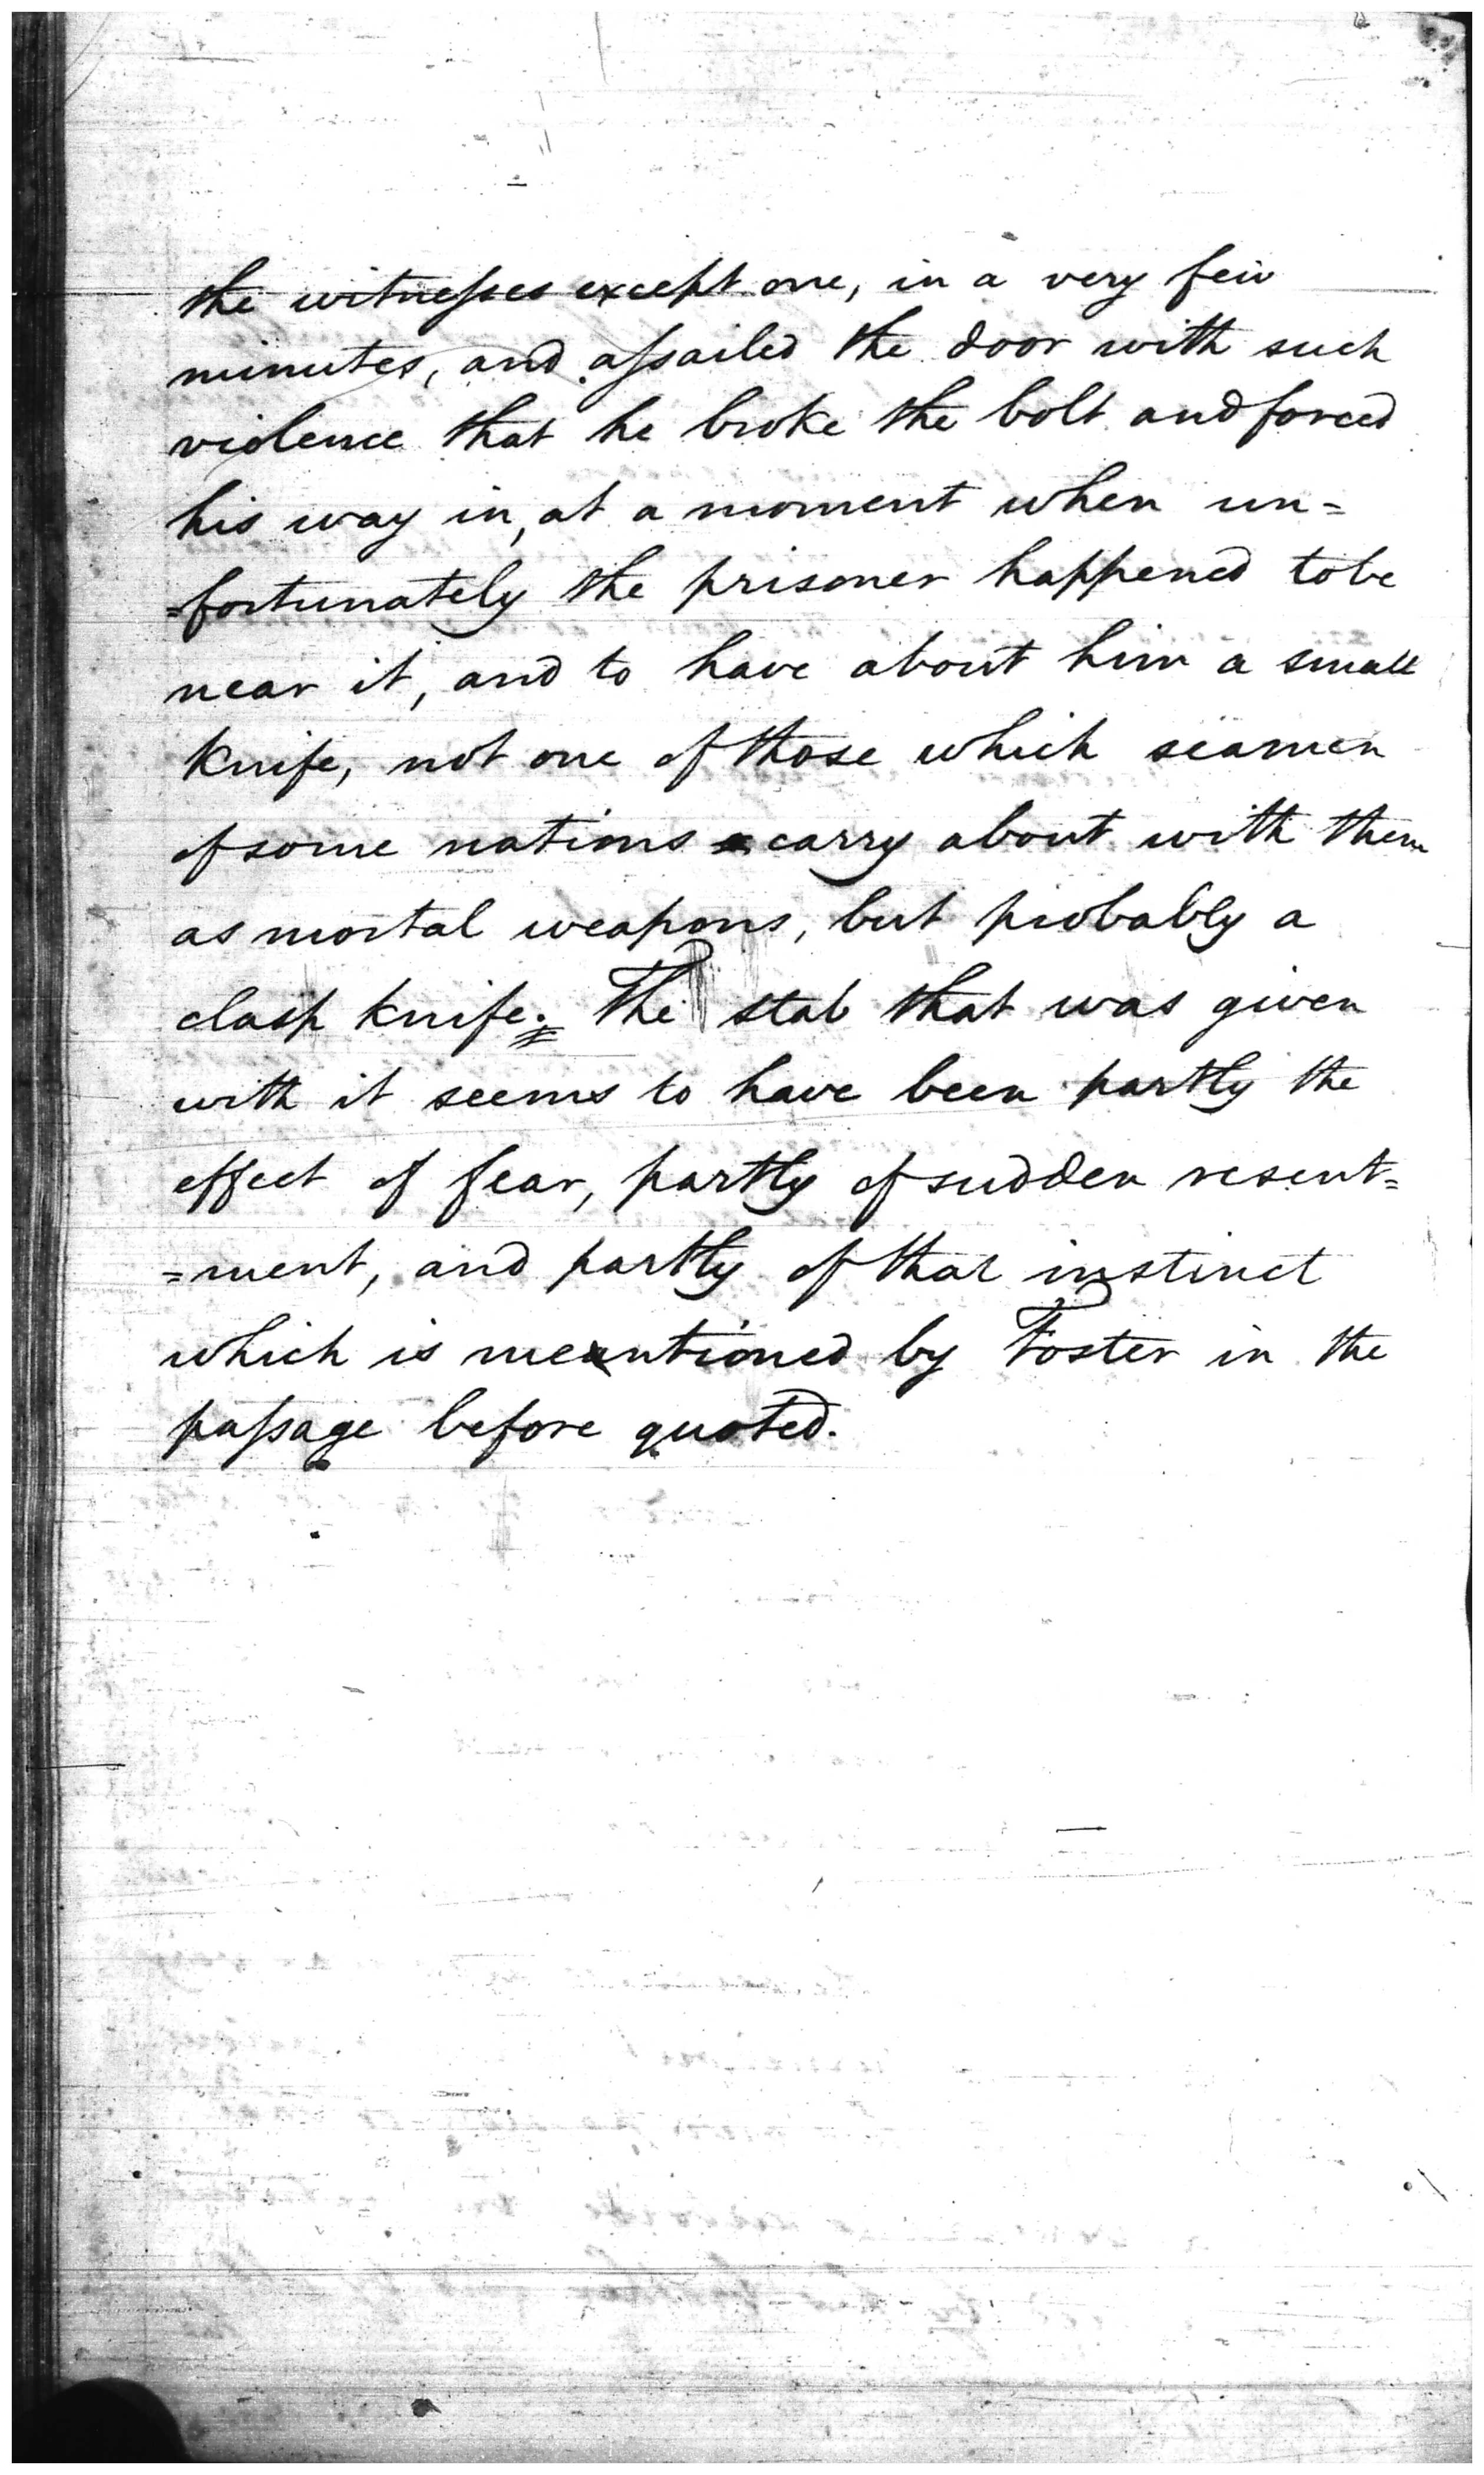 the witneſses except one, in a very few
minutes, and aſsailed the door with such
violence that he broke the bolt and forced
his way in, at a moment when un=
=fortunately the prisoner happened to be
near it, and to have about him a small
knife, not one of those which seamen
of some nations carry about with them
as mortal weapons, but probably a
clasp knife. The stab that was given
with it seems to have been partly the
effect of fear, partly of sudden resent=
=ment, and partly of that instinct
which is mentioned by Foster in the
paſsage before quoted.